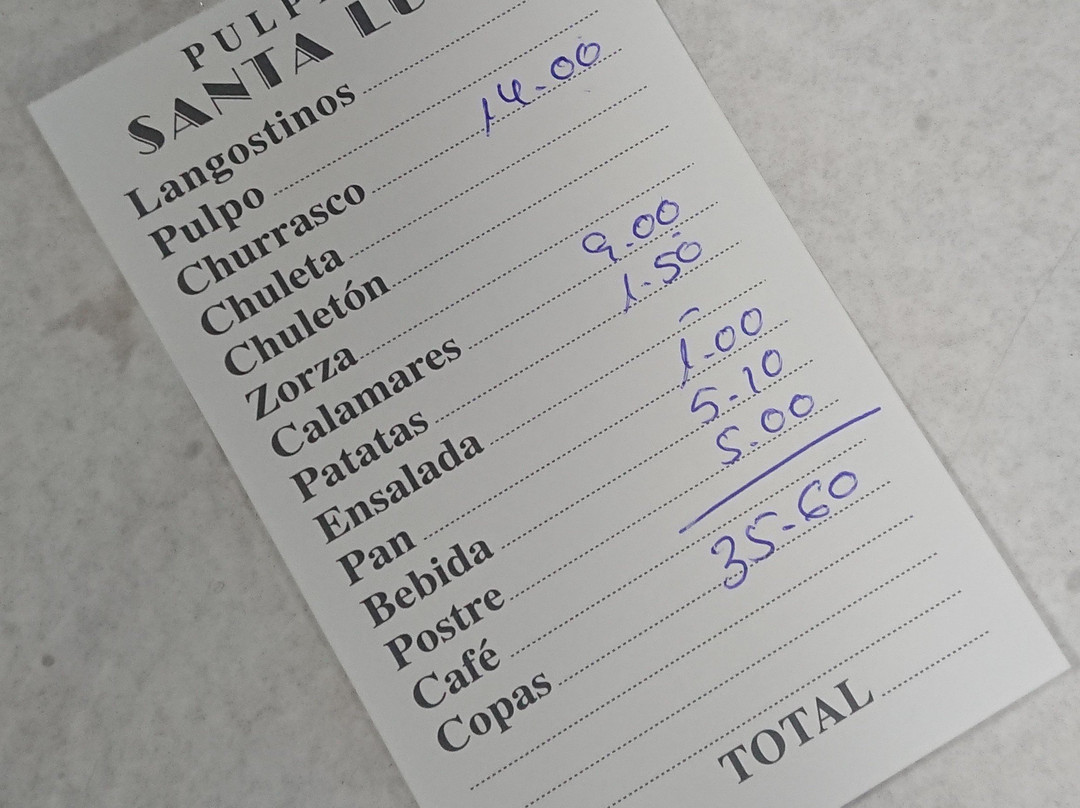 PULP
SANTA LU
Langostinos
Pulpo
Churrasco 14.00
Chuleta
Chuletón
Zorza
Calamares 9.00
Patatas 1.50
Ensalada
Pan 1.00
Bebida 5.10
Postre 5.00
Café
Copas 35.60
TOTAL